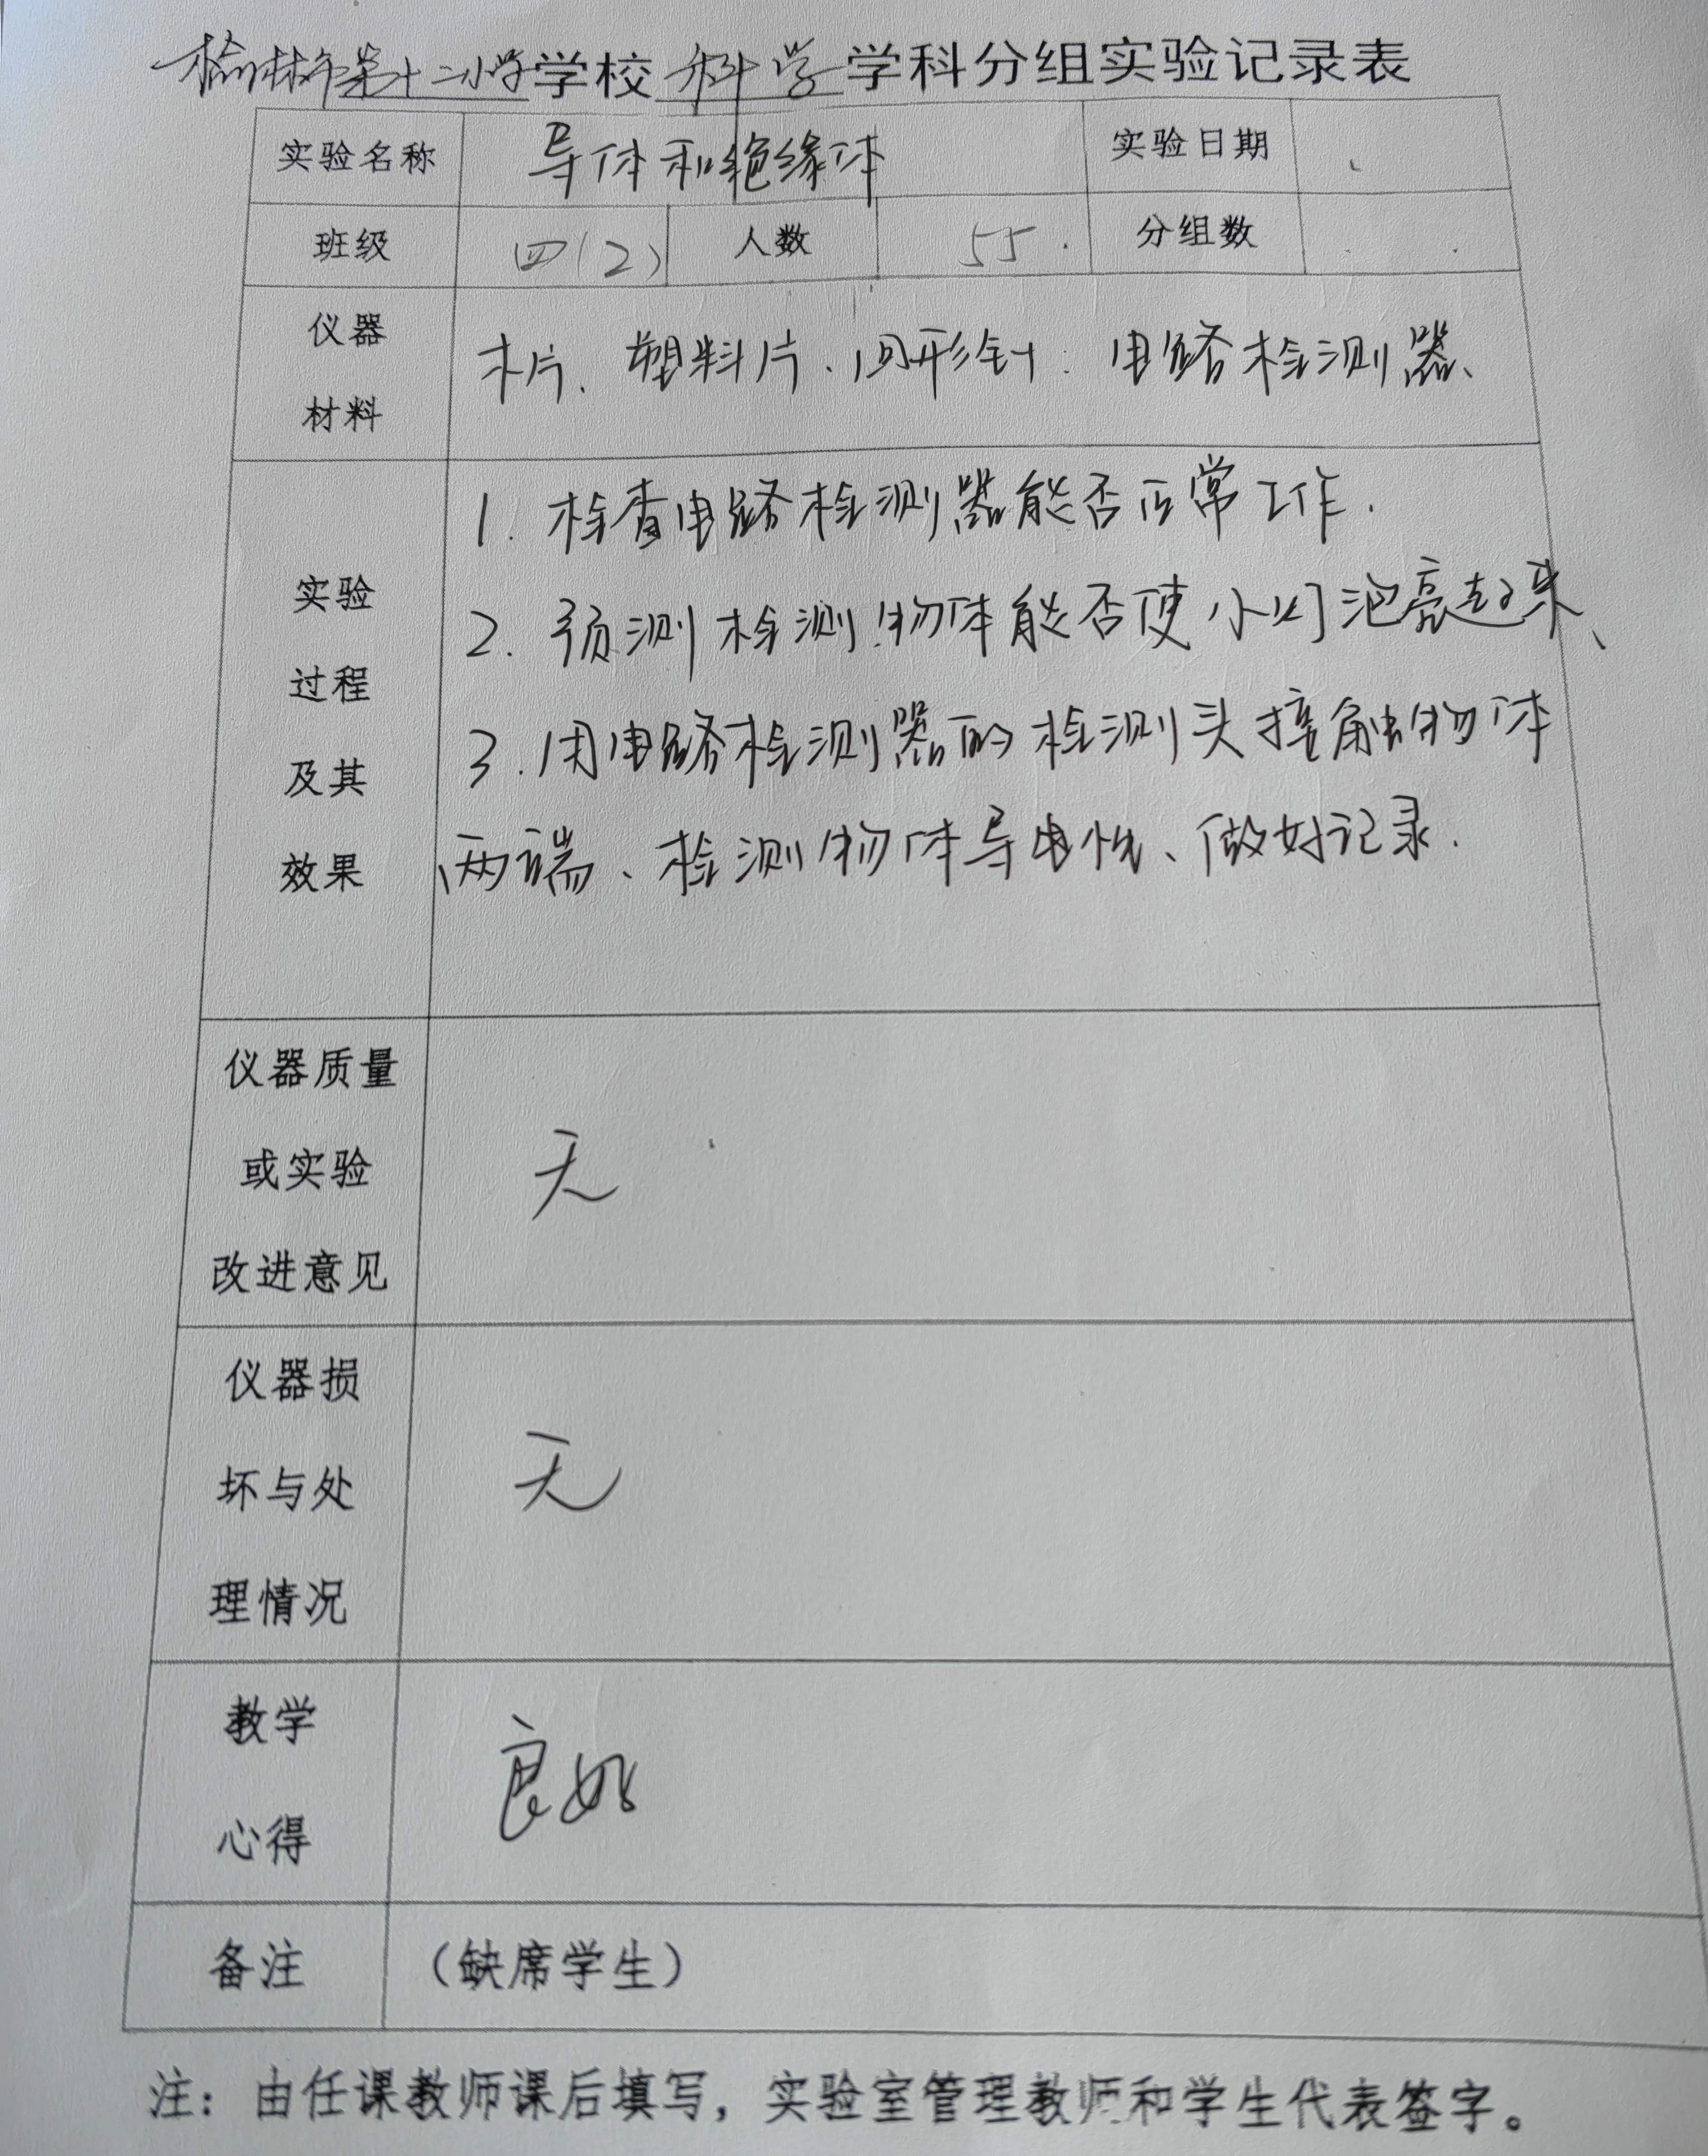 榆林市第十二小学学校 科学 学科分组实验记录表
实验名称 导体和绝缘体 实验日期
班级 四(2) 人数 55 分组数
仪器
材料
木片、塑料片、回形针、电路检测器、
实验
过程
及其
效果
1. 检查电路检测器能否正常工作.
2. 预测检测物体能否使小灯泡亮起来、
3. 用电路检测器的检测头接触物体
两端、检测物体导电性、做好记录.
仪器质量
或实验
改进意见
无
仪器损
坏与处
理情况
无
教学
心得
良好
备注 （缺席学生）
注：由任课教师课后填写，实验室管理教师和学生代表签字。